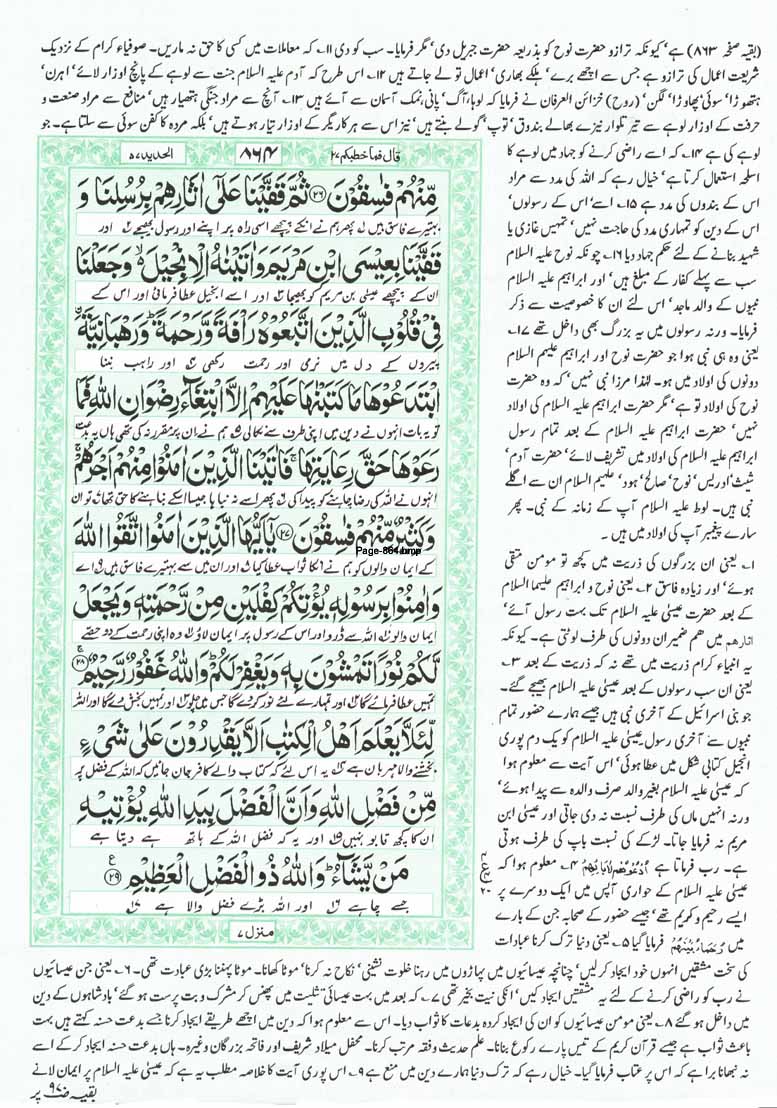 (بقیہ صفحہ ۸۶۳) ہے' کیونکہ ترازو حضرت نوح کو بذریعہ حضرت جبریل دی' مگر فرمایا۔ سب کو دی ۱۱۔ کہ معاملات میں کسی کا حق نہ ماریں۔ صوفیاء کرام کے نزدیک
شریعت اعمال کی ترازو ہے جس سے اچھے برے' ہلکے بھاری' اعمال تولے جاتے ہیں ۱۲۔ اس طرح کہ آدم علیہ السلام جنت سے لوہے کے پانچ اوزار لائے' اہرن'
ہتھوڑا' سوئی' پھاوڑا' لگن' (روح) خزائن العرفان نے فرمایا کہ لوہا' آگ' پانی' نمک آسمان سے آئے ہیں ۱۳۔ آنچ سے مراد جنگی ہتھیار ہیں' منافع سے مراد صنعت و
حرفت کے اوزار لوہے سے تیر تلوار نیزے بھالے بندوق' توپ' گولے بنتے ہیں' نیز اس سے ہر کاریگر کے اوزار تیار ہوتے ہیں' بلکہ مردہ کا کفن سوئی سے سلتا ہے۔ جو
لوہے کی ہے ۱۴۔ کہ اسے راضی کرنے کو جہاد میں لوہے کا
اسلحہ استعمال کرتا ہے' خیال رہے کہ اللہ کی مدد سے مراد
اس کے بندوں کی مدد ہے ۱۵۔ اسے' اس کے رسولوں'
اس کے دین کو تمہاری مدد کی حاجت نہیں' تمہیں غازی یا
شہید بنانے کے لئے حکم جہاد دیا ۱۶۔ چونکہ نوح علیہ السلام
سب سے پہلے کفار کے مبلغ ہیں' اور ابراہیم علیہ السلام
نبیوں کے والد ماجد' اس لئے ان کا خصوصیت سے ذکر
فرمایا۔ ورنہ رسولوں میں یہ بزرگ بھی داخل تھے ۱۷۔
یعنی وہ ہی نبی ہوا جو حضرت نوح اور ابراہیم علیہم السلام
دونوں کی اولاد میں ہو۔ لہٰذا مرزا نبی نہیں' کہ وہ حضرت
نوح کی اولاد تو ہے' مگر حضرت ابراہیم علیہ السلام کی اولاد
نہیں' حضرت ابراہیم علیہ السلام کے بعد تمام رسول
ابراہیم علیہ السلام کی اولاد میں تشریف لائے' حضرت آدم'
شیث' ادریس' نوح' صالح' ہود' علیہم السلام ان سے اگلے
نبی ہیں۔ لوط علیہ السلام آپ کے زمانہ کے نبی۔ پھر
سارے پیغمبر آپ کی اولاد میں ہیں۔
۱۔ یعنی ان بزرگوں کی ذریت میں کچھ تو مومن متقی
ہوئے' اور زیادہ فاسق ۲۔ یعنی نوح و ابراہیم علیہما السلام
کے بعد حضرت عیسیٰ علیہ السلام تک بہت رسول آئے'
اٰثارھم میں ھم ضمیر ان دونوں کی طرف لوٹتی ہے۔ کیونکہ
یہ انبیاء کرام ذریت میں تھے نہ کہ ذریت کے بعد ۳۔
یعنی ان سب رسولوں کے بعد عیسیٰ علیہ السلام بھیجے گئے۔
جو بنی اسرائیل کے آخری نبی ہیں جیسے ہمارے حضور تمام
نبیوں سے آخری رسول۔ عیسیٰ علیہ السلام کو یک دم پوری
انجیل کتابی شکل میں عطا ہوئی' اس آیت سے معلوم ہوا
کہ عیسیٰ علیہ السلام بغیر والد صرف والدہ سے پیدا ہوئے'
ورنہ انہیں ماں کی طرف نسبت نہ دی جاتی اور عیسیٰ ابن
مریم نہ فرمایا جاتا۔ لڑکے کی نسبت باپ کی طرف ہوتی
ہے۔ رب فرماتا ہے اُدْعُوْهُمْ لِاٰبَآئِهِمْ ۴۔ معلوم ہوا کہ
عیسیٰ علیہ السلام کے حواری آپس میں ایک دوسرے پر
ایسے رحیم و کریم تھے' جیسے حضور کے صحابہ جن کے بارے
میں رُحَمَآءُ بَيْنَهُمْ فرمایا گیا ۵۔ یعنی دنیا ترک کرنا عبادات
قال فما خطبکم ۲۷ ۸۶۴ الحدید ۵۷
مِّنْهُمْ فٰسِقُوْنَ ﴿۲۶﴾ ثُمَّ قَفَّيْنَا عَلٰٓى اٰثَارِهِمْ بِرُسُلِنَا وَ
بہتیرے فاسق ہیں پھر ہم نے انکے پیچھے اسی راہ پر اپنے اور رسول بھیجے اور
قَفَّيْنَا بِعِيْسَى ابْنِ مَرْيَمَ وَاٰتَيْنٰهُ الْاِنْجِيْلَ ۙ وَجَعَلْنَا
ان کے پیچھے عیسیٰ بن مریم کو بھیجا اور اسے انجیل عطا فرمائی اور اس کے
فِيْ قُلُوْبِ الَّذِيْنَ اتَّبَعُوْهُ رَاْفَةً وَّرَحْمَةً ؕ وَرَهْبَانِيَّةَ ۨ
پیروں کے دل میں نرمی اور رحمت رکھی اور راہب بننا
ابْتَدَعُوْهَا مَا كَتَبْنٰهَا عَلَيْهِمْ اِلَّا ابْتِغَآءَ رِضْوَانِ اللّٰهِ فَمَا
تو یہ بات انہوں نے دین میں اپنی طرف سے نکالی ہم نے ان پر مقرر نہ کی تھی ہاں یہ بدعت
رَعَوْهَا حَقَّ رِعَايَتِهَا ۚ فَاٰتَيْنَا الَّذِيْنَ اٰمَنُوْا مِنْهُمْ اَجْرَهُمْ ۚ
انہوں نے اللہ کی رضا چاہنے کو پیدا کی پھر اسے نہ نباہا جیسا اسکے نباہنے کا حق تھا تو ان
وَكَثِيْرٌ مِّنْهُمْ فٰسِقُوْنَ ﴿۲۷﴾ يٰٓاَيُّهَا الَّذِيْنَ اٰمَنُوا اتَّقُوا اللّٰهَ
Page-864.bmp
کے ایمان والوں کو ہم نے انکا ثواب عطا کیا اور ان میں سے بہتیرے فاسق ہیں اے
وَاٰمِنُوْا بِرَسُوْلِهٖ يُؤْتِكُمْ كِفْلَيْنِ مِنْ رَّحْمَتِهٖ وَيَجْعَلْ
ایمان والو اللہ سے ڈرو اور اس کے رسول پر ایمان لاؤ وہ اپنی رحمت کے دو حصے
لَّكُمْ نُوْرًا تَمْشُوْنَ بِهٖ وَيَغْفِرْ لَكُمْ ؕ وَاللّٰهُ غَفُوْرٌ رَّحِيْمٌ ﴿۲۸﴾
تمہیں عطا فرمائے گا اور تمہارے لئے نور کر دے گا جس میں چلو اور تمہیں بخش دے گا اور اللہ
لِّئَلَّا يَعْلَمَ اَهْلُ الْكِتٰبِ اَلَّا يَقْدِرُوْنَ عَلٰى شَيْءٍ
بخشنے والا مہربان ہے یہ اس لئے کہ کتاب والے کافر جان جائیں کہ اللہ کے فضل پر
مِّنْ فَضْلِ اللّٰهِ وَاَنَّ الْفَضْلَ بِيَدِ اللّٰهِ يُؤْتِيْهِ
ان کا کچھ قابو نہیں اور یہ کہ فضل اللہ کے ہاتھ ہے دیتا ہے
مَنْ يَّشَآءُ ؕ وَاللّٰهُ ذُو الْفَضْلِ الْعَظِيْمِ ﴿۲۹﴾
جسے چاہے اور اللہ بڑے فضل والا ہے
منزل ۷
کی سخت مشقیں انہوں خود ایجاد کر لیں' چنانچہ عیسائیوں میں پہاڑوں میں رہنا خلوت نشینی' نکاح نہ کرنا' موٹا کھانا۔ موٹا پہننا بڑی عبادت تھی۔ ۶۔ یعنی جن عیسائیوں
نے رب کو راضی کرنے کے لئے یہ مشقیں ایجاد کیں' انکی نیت بخیر تھی ۷۔ کہ بعد میں بہت عیسائی' تثلیث میں پھنس کر مشرک و بت پرست ہو گئے' بادشاہوں کے دین
میں داخل ہو گئے ۸۔ یعنی مومن عیسائیوں کو ان کی ایجاد کردہ بدعات کا ثواب دیا۔ اس سے معلوم ہوا کہ دین میں اچھے طریقے ایجاد کرنا جسے بدعت حسنہ کہتے ہیں بہت
باعث ثواب ہے جیسے قرآن کریم کے تیس پارے رکوع بنانا۔ علم حدیث و فقہ مرتب کرنا۔ محفل میلاد شریف اور فاتحہ بزرگان وغیرہ۔ ہاں بدعت حسنہ ایجاد کر کے اسے
نہ نبھانا برا ہے کہ اس پر عتاب فرمایا گیا۔ خیال رہے کہ ترک دنیا ہمارے دین میں منع ہے ۹۔ اس پوری آیت کا خلاصہ مطلب یہ ہے کہ عیسیٰ علیہ السلام پر ایمان لانے
بقیہ صفحہ ۹۷۰ پر